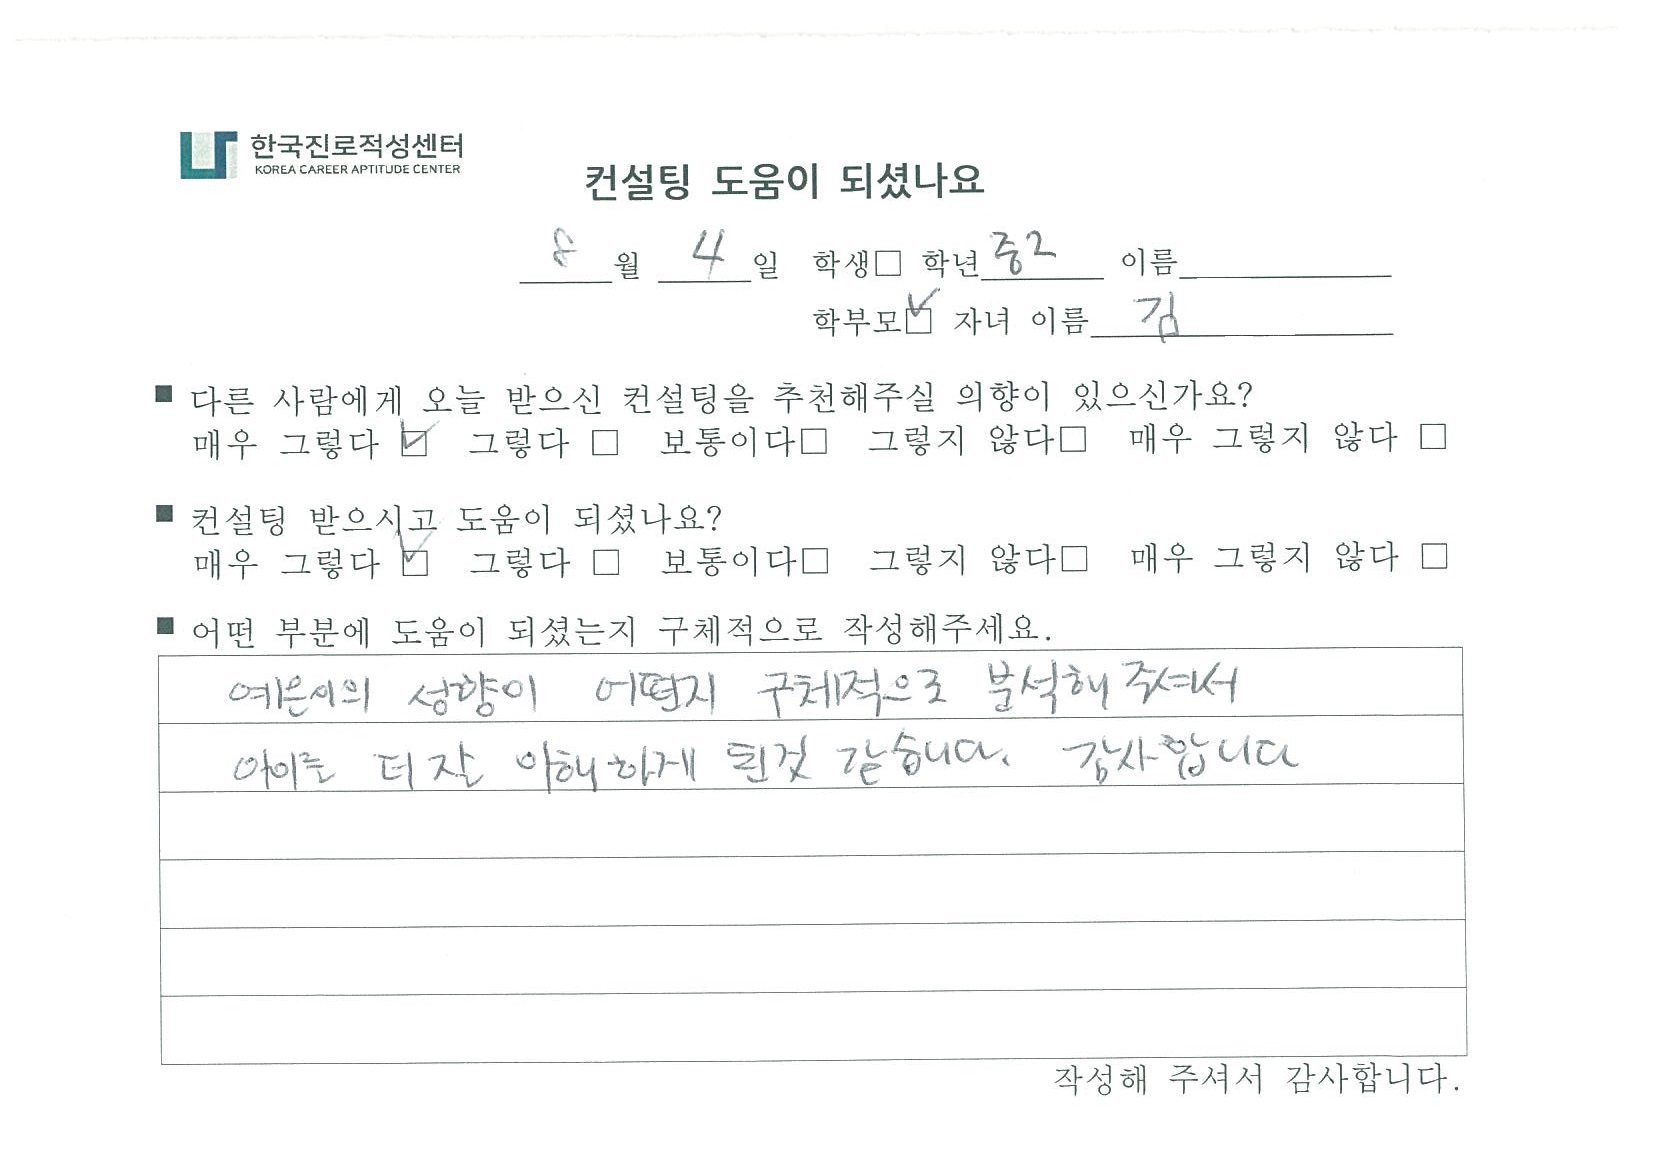 한국진로적성센터
KOREA CAREER APTITUDE CENTER
컨설팅 도움이 되셨나요
8 월 4 일 학생□ 학년 중2 이름
학부모☑ 자녀 이름 김
■ 다른 사람에게 오늘 받으신 컨설팅을 추천해주실 의향이 있으신가요?
매우 그렇다 ☑ 그렇다 □ 보통이다□ 그렇지 않다□ 매우 그렇지 않다 □
■ 컨설팅 받으시고 도움이 되셨나요?
매우 그렇다 ☑ 그렇다 □ 보통이다□ 그렇지 않다□ 매우 그렇지 않다 □
■ 어떤 부분에 도움이 되셨는지 구체적으로 작성해주세요.
예은이의 성향이 어떤지 구체적으로 분석해 주셔서
아이를 더 잘 이해하게 된것 같습니다. 감사합니다
작성해 주셔서 감사합니다.